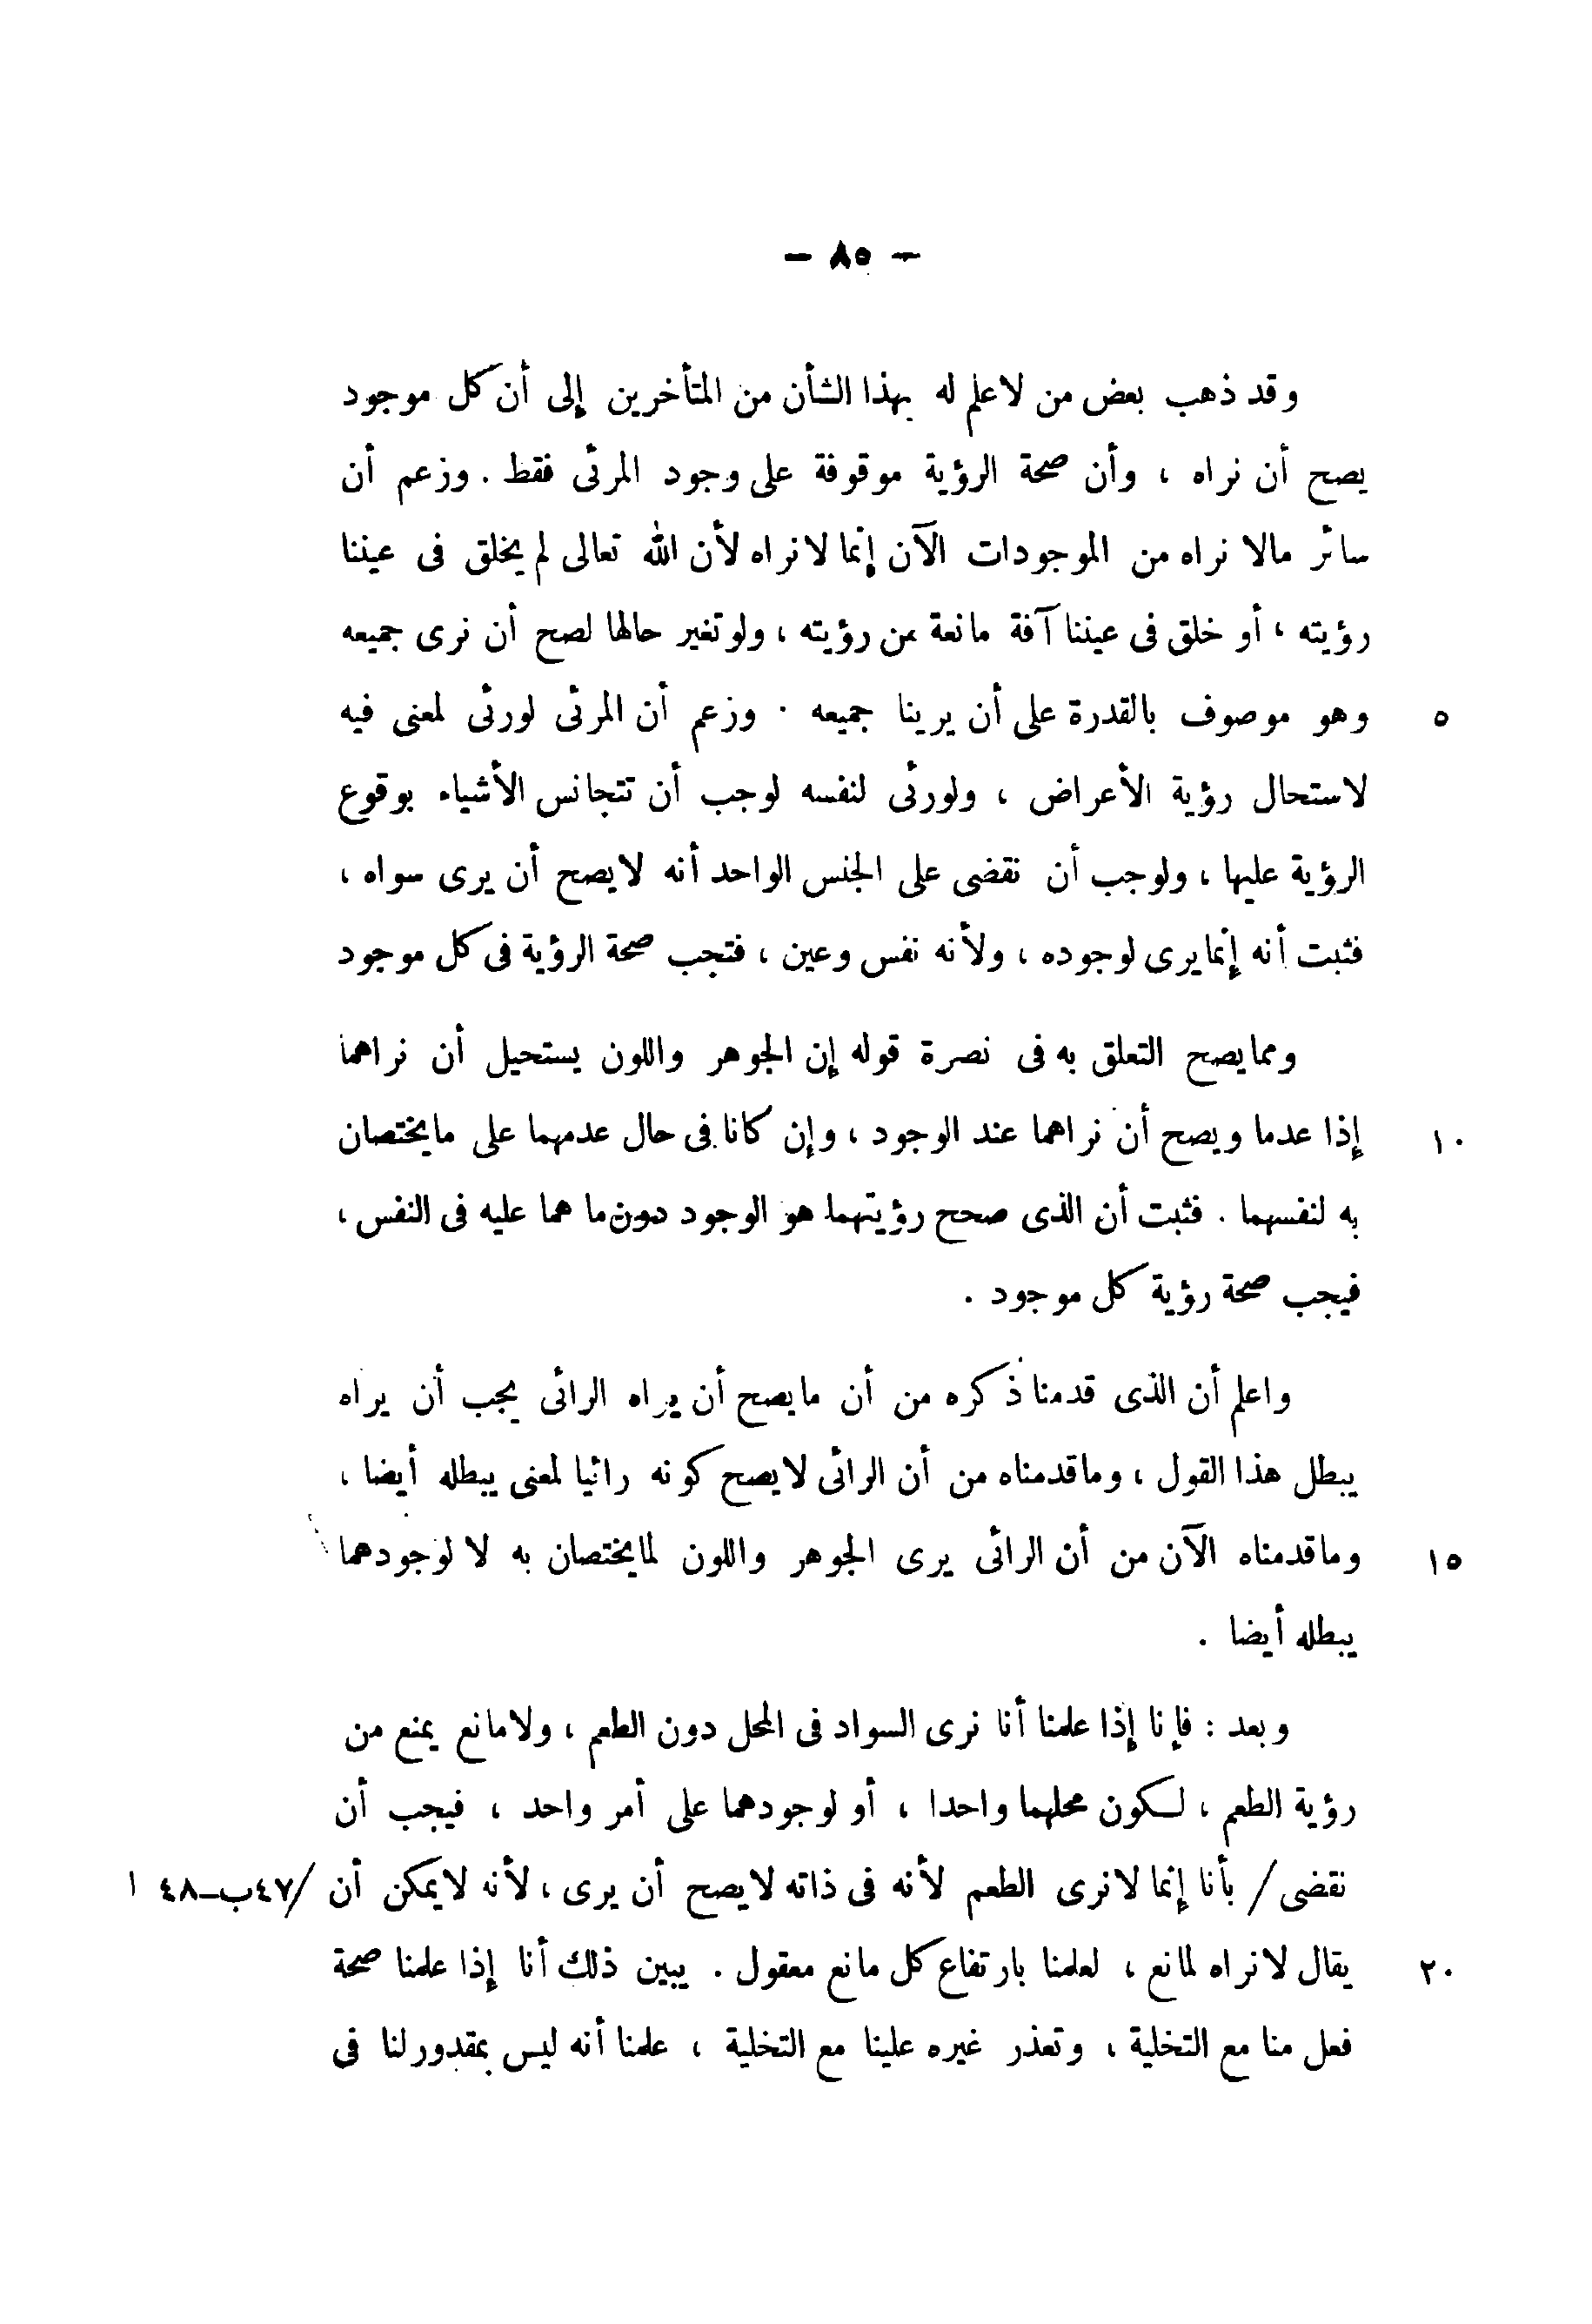 — ٨٥ —
وقد ذهب بعض من لاعلم له بهذا الشأن من المتأخرين إلى أن كل موجود
يصح أن نراه ، وأن صحة الرؤية موقوفة على وجود المرئى فقط . وزعم أن
سائر مالا نراه من الموجودات الآن إنما لا نراه لأن الله تعالى لم يخلق فى عيننا
رؤيته ، أو خلق فى عيننا آفة مانعة من رؤيته ، ولو تغير حالها لصح أن نرى جميعه
وهو موصوف بالقدرة على أن يرينا جميعه . وزعم أن المرئى لورئى لمعنى فيه ٥
لاستحال رؤية الأعراض ، ولورئى لنفسه لوجب أن تتجانس الأشياء بوقوع
الرؤية عليها ، ولوجب أن نقضى على الجنس الواحد أنه لايصح أن يرى سواه ،
فثبت أنه إنما يرى لوجوده ، ولأنه نفس وعين ، فتجب صحة الرؤية فى كل موجود
ومما يصح التعلق به فى نصرة قوله إن الجوهر واللون يستحيل أن نراهما
إذا عدما ويصح أن نراهما عند الوجود ، وإن كانا فى حال عدمهما على مايختصان ١٠
به لنفسهما . فثبت أن الذى صحح رؤيتهما هو الوجود دون ما هما عليه فى النفس ،
فيجب صحة رؤية كل موجود .
واعلم أن الذى قدمنا ذكره من أن مايصح أن يراه الرائى يجب أن يراه
يبطل هذا القول ، وماقدمناه من أن الرائى لايصح كونه رائيا لمعنى يبطله أيضا ،
وماقدمناه الآن من أن الرائى يرى الجوهر واللون لمايختصان به لا لوجودهما ١٥
يبطله أيضا .
وبعد : فإنا إذا علمنا أنا نرى السواد فى المحل دون الطعم ، ولامانع يمنع من
رؤية الطعم ، لكون محلهما واحدا ، أو لوجودهما على أمر واحد ، فيجب أن
نقضى / بأنا إنما لانرى الطعم لأنه فى ذاته لايصح أن يرى ، لأنه لايمكن أن /٤٧ب–٤٨ ا
يقال لانراه لمانع ، لعلمنا بارتفاع كل مانع معقول . يبين ذلك أنا إذا علمنا صحة ٢٠
فعل منا مع التخلية ، وتعذر غيره علينا مع التخلية ، علمنا أنه ليس بمقدور لنا فى